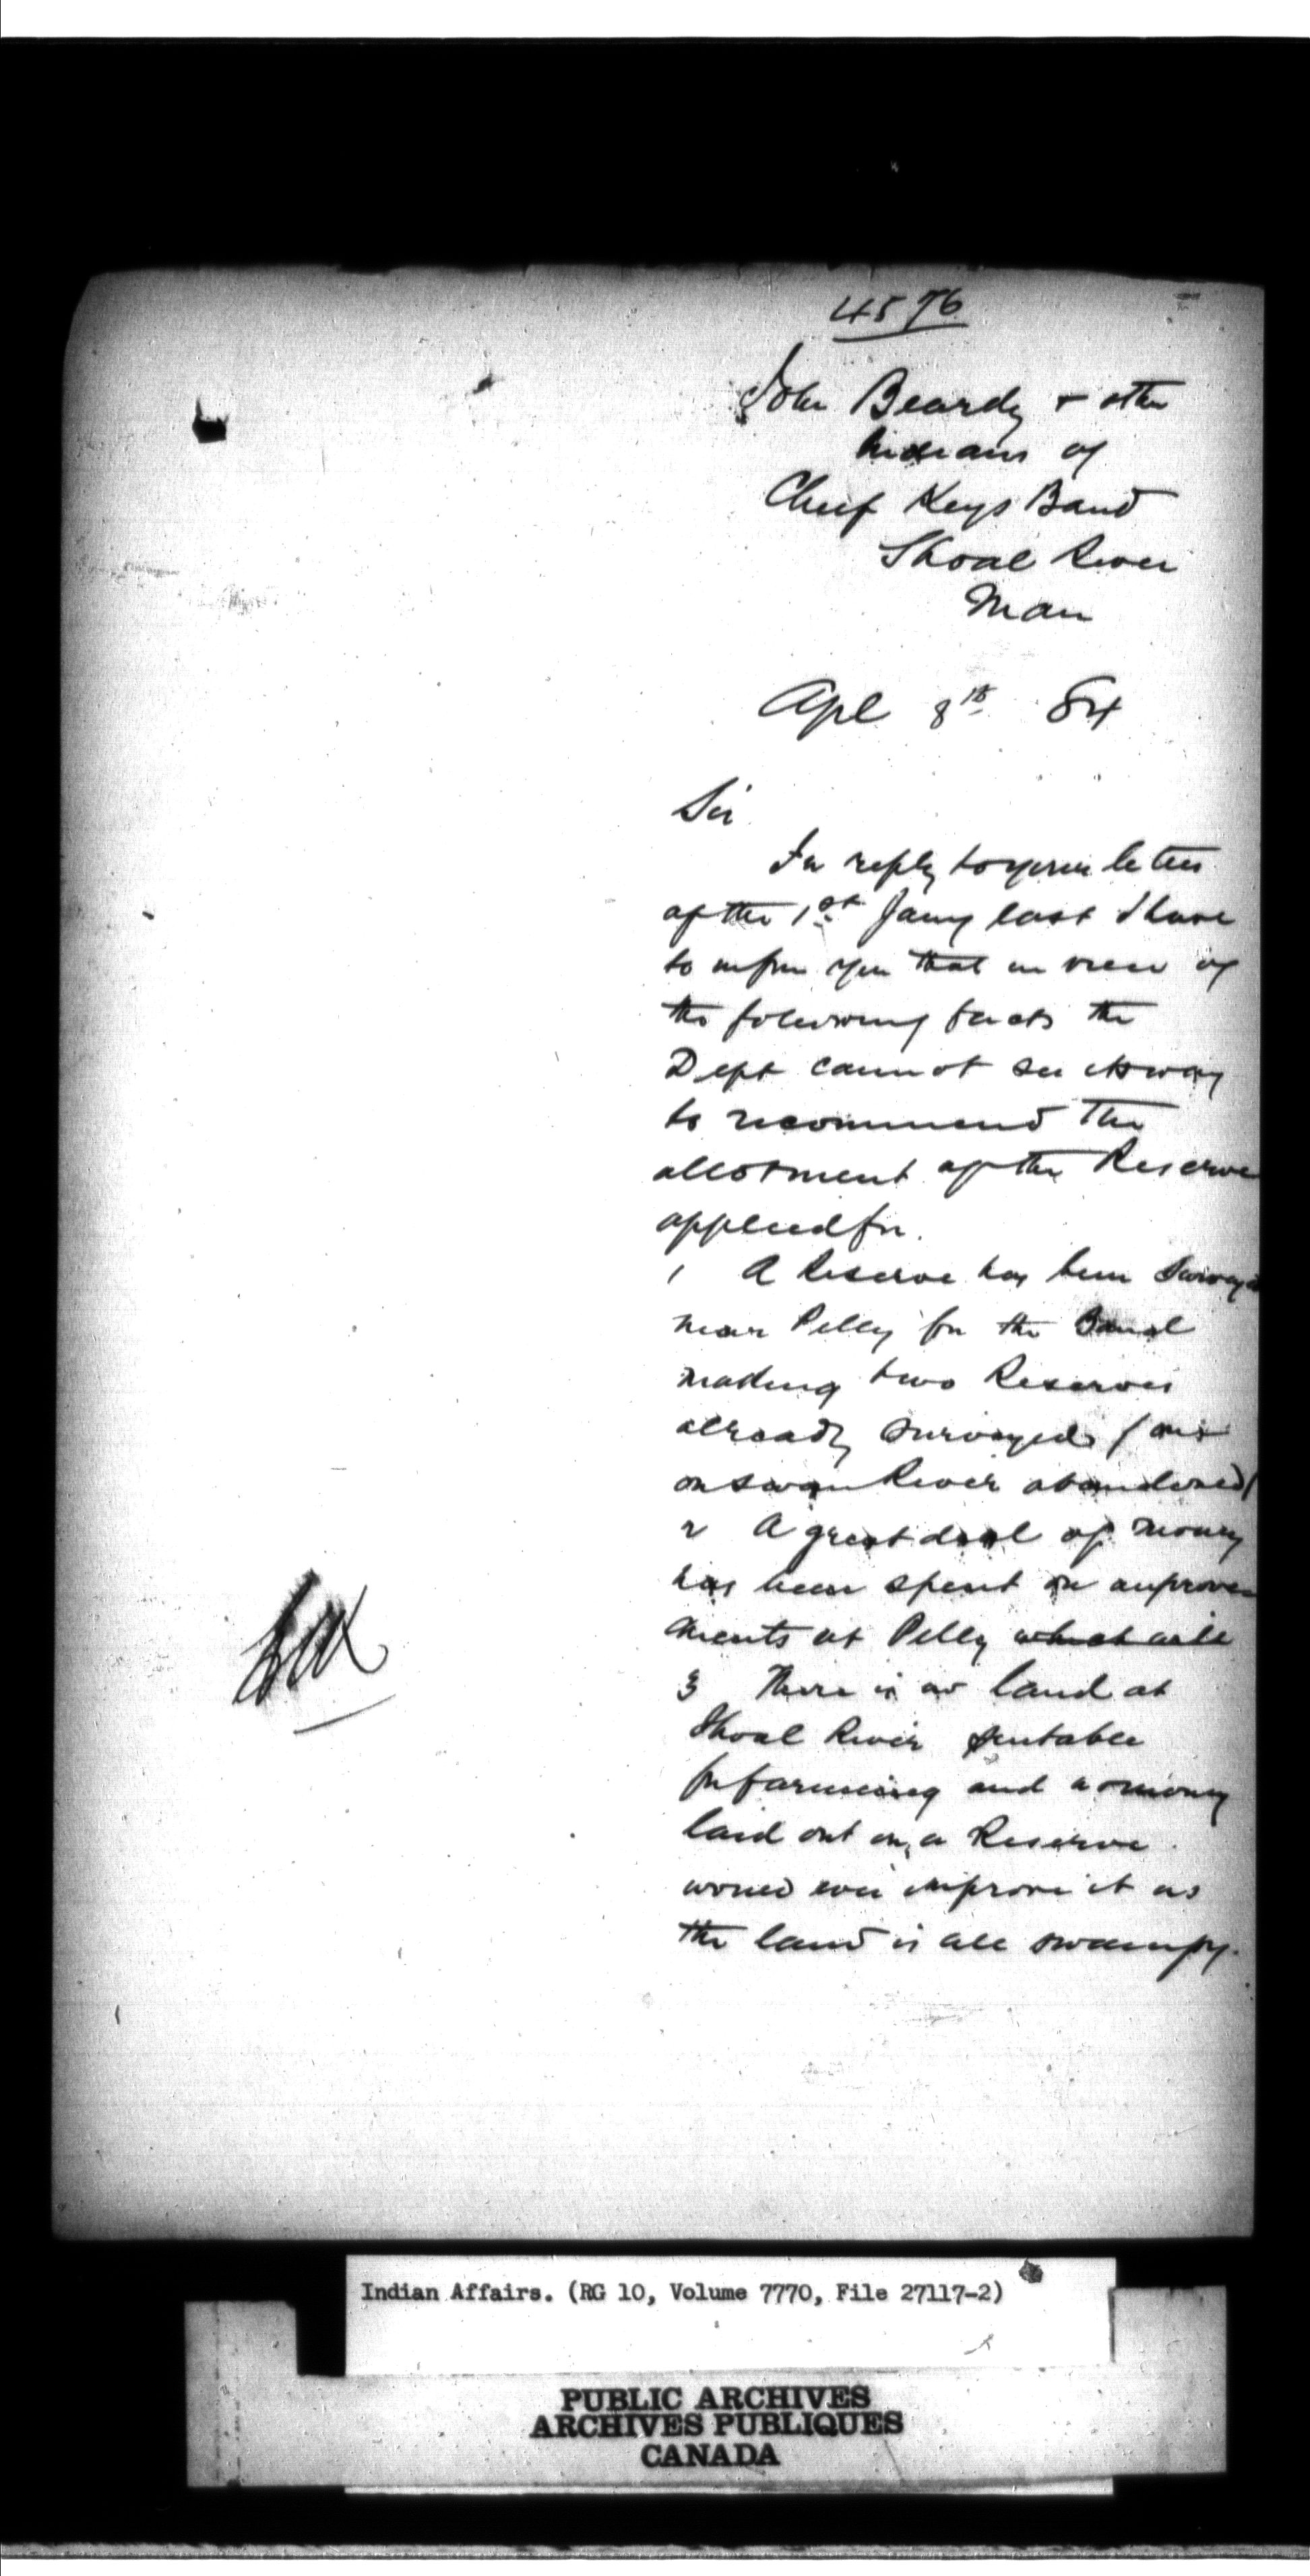 4576
John Beardy + other
Indians of
Chief Keys Band
Shoal River
Man
Apl 8th 84
Sir
In reply to your letter
of the 1st Jany last I have
to inform you that in view of
the following facts the
Dept cannot see its way
to recommend the
allotment of the Reserve
applied for.
1 A Reserve has been Surveyed
near Pelly for the Band
making two Reserves
already surveyed (one
on Swan River abandoned)
2 A great deal of money
has been spent on improve
ments at Pelly which will
3 There is no land at
Shoal River suitable
for farming and no money
laid out on a Reserve
would ever improve it as
the land is all swampy.
Indian Affairs. (RG 10, Volume 7770, File 27117-2)
PUBLIC ARCHIVES
ARCHIVES PUBLIQUES
CANADA